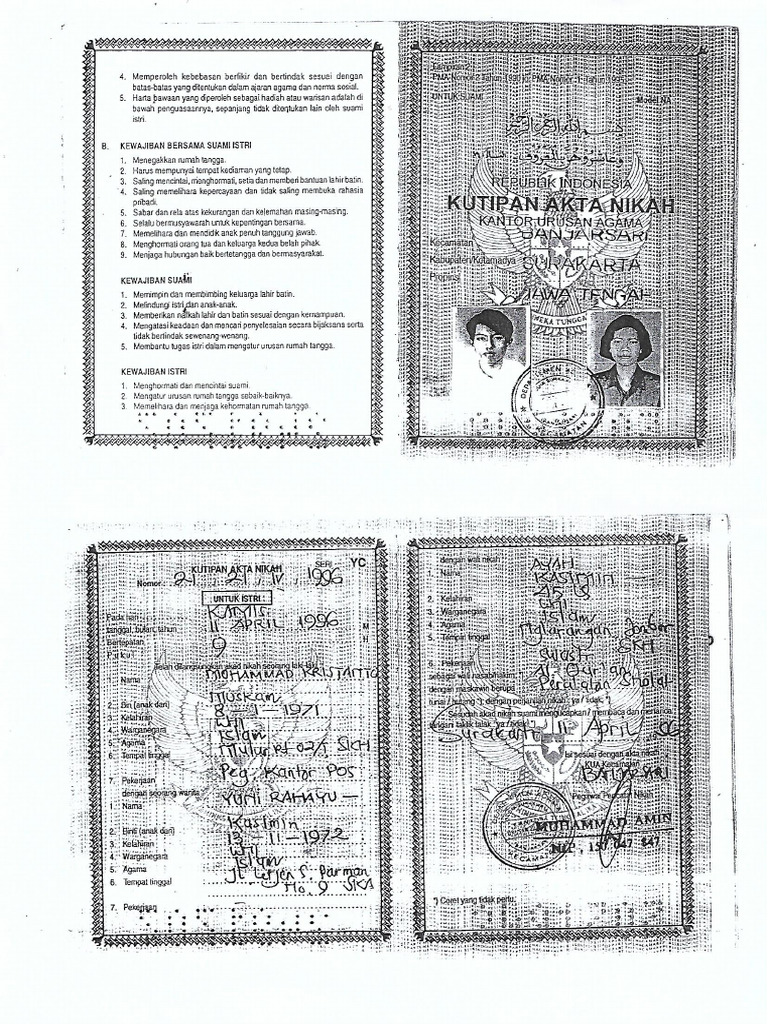 4. Memperoleh kebebasan berfikir dan bertindak sesuai dengan
batas-batas yang ditentukan dalam ajaran agama dan norma sosial.
5. Harta bawaan yang diperoleh sebagai hadiah atau warisan adalah di
bawah penguasaannya, sepanjang tidak ditentukan lain oleh suami
istri.
B. KEWAJIBAN BERSAMA SUAMI ISTRI
1. Menegakkan rumah tangga.
2. Harus mempunyai tempat kediaman yang tetap.
3. Saling mencintai, menghormati, setia dan memberi bantuan lahir batin.
4. Saling memelihara kepercayaan dan tidak saling membuka rahasia
pribadi.
5. Sabar dan rela atas kekurangan dan kelemahan masing-masing.
6. Selalu bermusyawarah untuk kepentingan bersama.
7. Memelihara dan mendidik anak penuh tanggung jawab.
8. Menghormati orang tua dan keluarga kedua belah pihak.
9. Menjaga hubungan baik bertetangga dan bermasyarakat.
KEWAJIBAN SUAMI
1. Memimpin dan membimbing keluarga lahir batin.
2. Melindungi istri dan anak-anak.
3. Memberikan nafkah lahir dan batin sesuai dengan kemampuan.
4. Mengatasi keadaan dan mencari penyelesaian secara bijaksana serta
tidak bertindak sewenang-wenang.
5. Membantu tugas istri dalam mengatur urusan rumah tangga.
KEWAJIBAN ISTRI
1. Menghormati dan mencintai suami.
2. Mengatur urusan rumah tangga sebaik-baiknya.
3. Memelihara dan menjaga kehormatan rumah tangga.
Lampiran 2
PMA Nomor 2 Tahun 1990 jo PMA Nomor 1 Tahun
UNTUK SUAMI
Model NA
بسم الله الرحمن الرحيم
وعاشروهن بالمعروف
REPUBLIK INDONESIA
KUTIPAN AKTA NIKAH
KANTOR URUSAN AGAMA
Kecamatan BANJARSARI
Kabupaten/Kotamadya SURAKARTA
Propinsi JAWA TENGAH
KUTIPAN AKTA NIKAH SERI YC
Nomor: 21, 21, IV, 1996
UNTUK ISTRI :
Pada hari KAMIS
tanggal, bulan, tahun 11 APRIL 1996 M
Bertepatan H
Pukul 9
Telah dilangsungkan akad nikah seorang laki-laki
Nama MUHAMMAD KRISTANTO
2. Bin (anak dari) Muskam
3. Kelahiran 8-1-1971
4. Warganegara WNI
5. Agama Islam
6. Tempat tinggal SKH
7. Pekerjaan Peg. Kantor Pos
dengan seorang wanita
1. Nama YUNI RAHAYU -
2. Binti (anak dari) Kasimin
3. Kelahiran 13-11-1972
4. Warganegara WNI
5. Agama Islam
6. Tempat tinggal Jl Letjen S. Parman
No. 9 SKA
7. Pekerjaan
dengan wali nikah AYAH
1. Nama KASIMIN
2. Kelahiran
3. Warganegara WNI
4. Agama Islam
5. Tempat tinggal
SKH
6. Pekerjaan Swast
sebagai wali nasab/hakim
dengan maskawin berupa Peralatan Sholat
tunai / hutang *); dengan perjanjian nikah : ya / tidak. *)
Sesudah akad nikah suami mengucapkan / membaca dan menanda
tangani taklik talak : ya / tidak. *)
Surakarta 11 April
sesuai dengan akta nikah
KUA Kecamatan
BANJARSARI
Pegawai Pencatat Nikah
MUHAMMAD AMIN
NIP. 150 047 847
*) Coret yang tidak perlu.